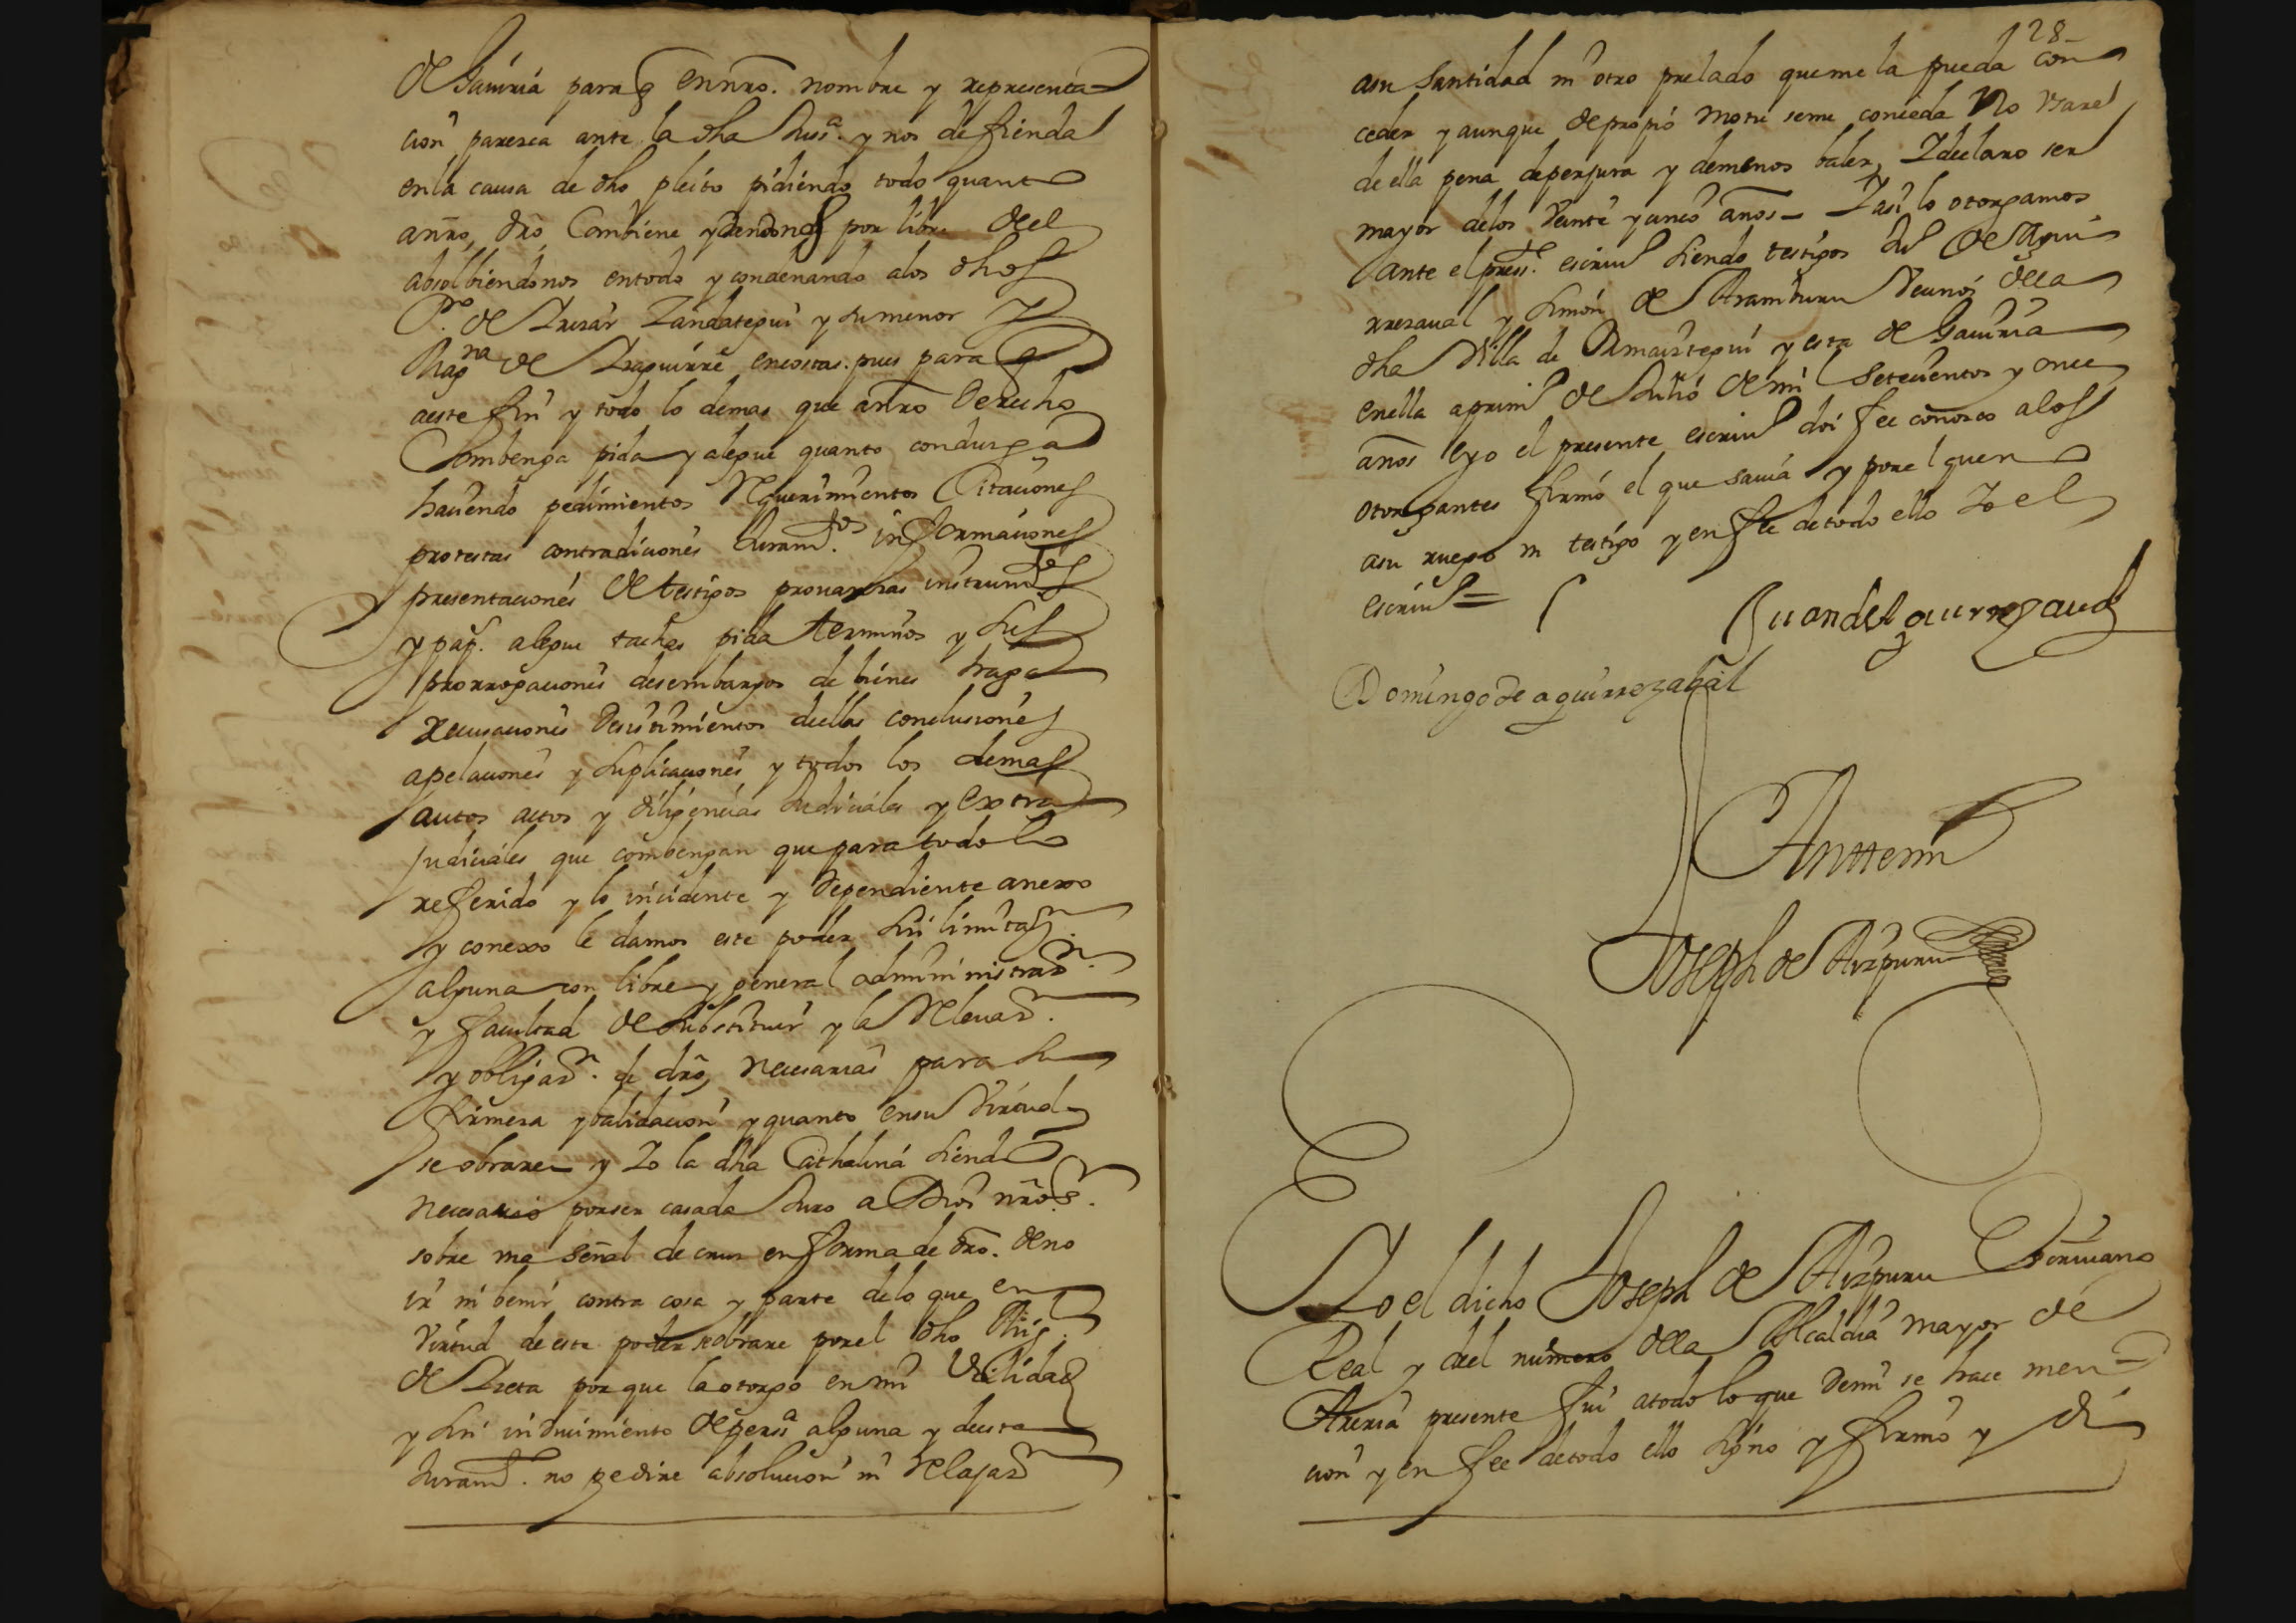 de Gaviria para q en nro. nombre y representa
cion paresca ante la dha Juss.ª y nos defienda
en la causa de dho pleito pidiendo todo quanto
a nro dro Combiene y dandonos por libres de el
absolbiendonos en todo y condenando a los dhos
P.º de Irizar Zandategui y su menor Y
Mag.na de Izaguirre en costas. pues para q
a este fin y todo lo demas que a nro Derecho
Combenga pida y alegue quanto condusga
haciendo pedimientos Requerimientos Citaciones
protestas contradiciones Juram.tos informaciones
presentaciones de testigos provanzas instrum.tos
y pap.s alegue tachas pida terminos y sus
prorrogaciones desembargos de bienes haga
recusaciones Desistimientos de ellas conclusiones
apelaciones y suplicaciones y todos los demas
autos actos y diligencias Judiciales y extra
judiciales que combengan que para todo lo
referido y lo incidente y Dependiente anexo
y conexo le damos este poder sin limitaz.n
alguna con libre y general administraz.n
y facultad de substituir y la Relevaz.n
y obligaz.n de dro necesarias para su
firmeza y balidacion y quanto en su Virtud
se obrare y Yo la dha Cathalina siendo
necesario por ser casada Juro a Dios nro S.r
sobre una señal de cruz en forma de dro. de no
ir ni benir contra cosa y parte de lo que en
Virtud de este poder se obrare por el dho
de Ireta porque la otorgo en mi Utilidad
y sin inducimiento de perss.ª alguna y de este
Juram.to no pedire absolucion ni Relajaz.n
128
a su Santidad ni otro prelado que me la pueda con
ceder y aunque de propio motu se me conceda No Usare
de ella pena de perjura y de menos baler, Y declaro ser
mayor de los Veinte y cinco años Y asi lo otorgamos
ante el press.te escriv.º siendo testigos de Agui
rrezaval y Simon de Aramburu Vecinos de la
dha Villa de Ormaiztegui y esta de Gaviria
en ella a prim.º de Julio de mil Setecientos y once
años E yo el presente escriv.º doi fee conozco a los
otorgantes firmó el que savia y por el que no
a su ruego un testigo y en fee de todo ello Yo el
escriv.º =
Juan de Aguirrezaval
Domingo de aguirrezabal
Antte mi
Joseph de Aizpuru
Yo el dicho Joseph de Aizpuru Escrivano
Real y del numero de la Alcaldia mayor de
Areria presente fui a todo lo que de mi se hace men
cion y en fee de todo ello signo y firmo y